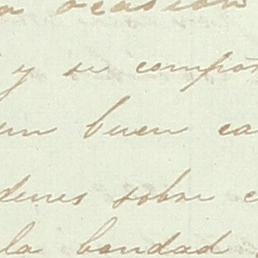 a ocasion
y se compo
un buen ca
denes sobre c
la bondad